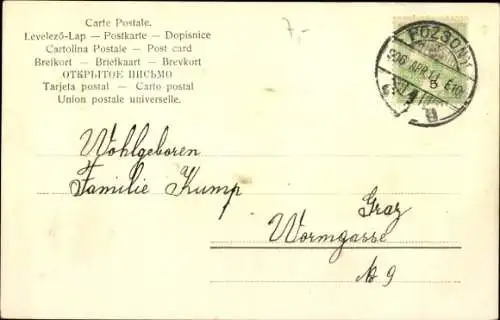 Carte Postale.
Levelező-Lap — Postkarte — Dopisnice
Cartolina Postale — Post card
Breikort — Briefkaart — Brevkort
ОТКРЫТОЕ ПИСЬМО
Tarjeta postal — Carto postal
Union postale universelle.
7,-
POZSONY
906 APR 14
5
Wohlgeboren
Familie Kump
Graz
Wormgasse
№ 9